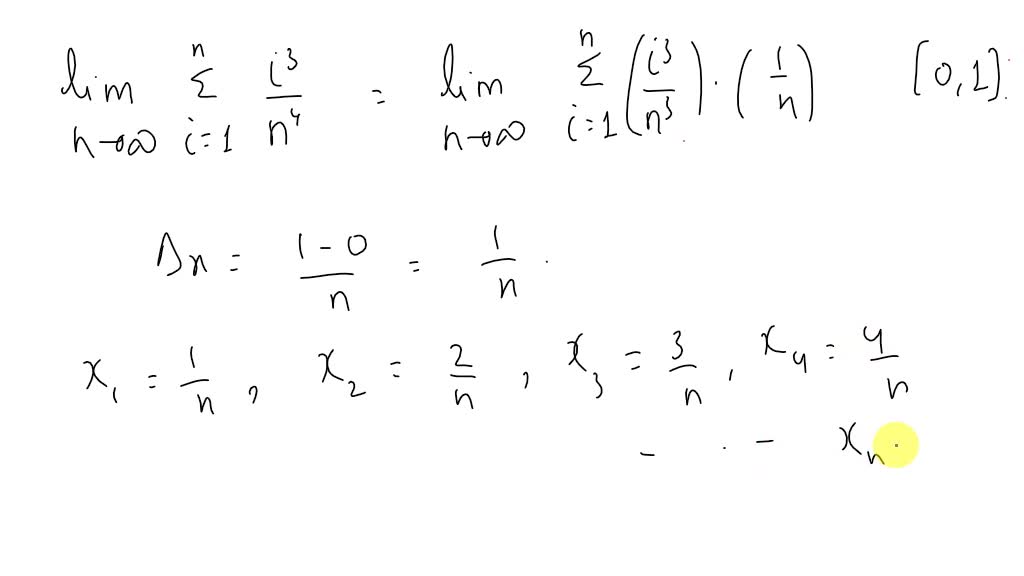 lim n→∞ Σ i=1 n i³/n⁴ = lim n→∞ Σ i=1 n (i³/n³) · (1/n) [0,1]
Δx = (1 - 0)/n = 1/n .
x₁ = 1/n , x₂ = 2/n , x₃ = 3/n , x₄ = 4/n
- . - xₙ